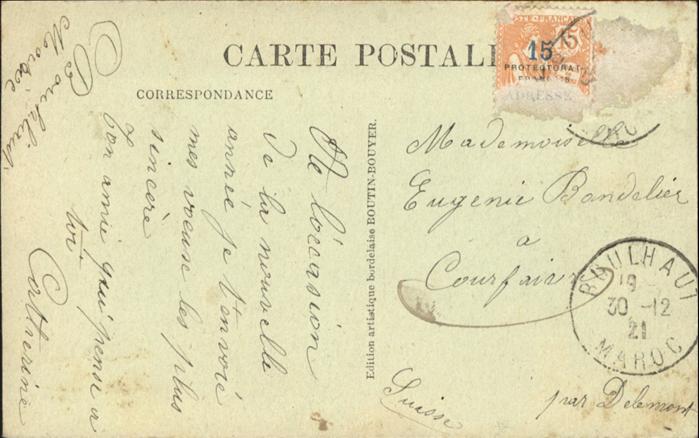 CARTE POSTALE
CORRESPONDANCE
ADRESSE
15
15
PROTECTORAT
FRANÇAIS
Boulhaut
Maroc
A l'occasion
de la nouvelle
année je t'envoie
mes voeux les plus
sincère
ton amie qui pense a
toi
Catherine
Edition artistique bordelaise BOUTIN-BOUYER.
Mademoiselle
Eugenie Bandelier
a
Courfaivre
Suisse
par Delemont
BOULHAUT
19
30-12
21
MAROC